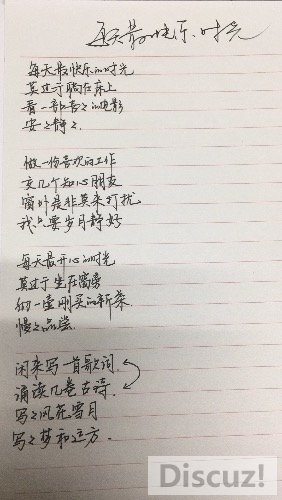 每天最快乐时光
每天最快乐的时光
莫过于躺在床上
看一部喜欢的电影
安安静静.
做一份喜欢的工作
交几个知心朋友
窗外是非莫来打扰
我只要岁月静好
每天最开心的时光
莫过于坐在窗旁
一壶刚买的新茶
慢慢品尝.
闲来写一首歌词
诵读几卷古诗.
写写风花雪月
写写梦和远方.
Discuz!